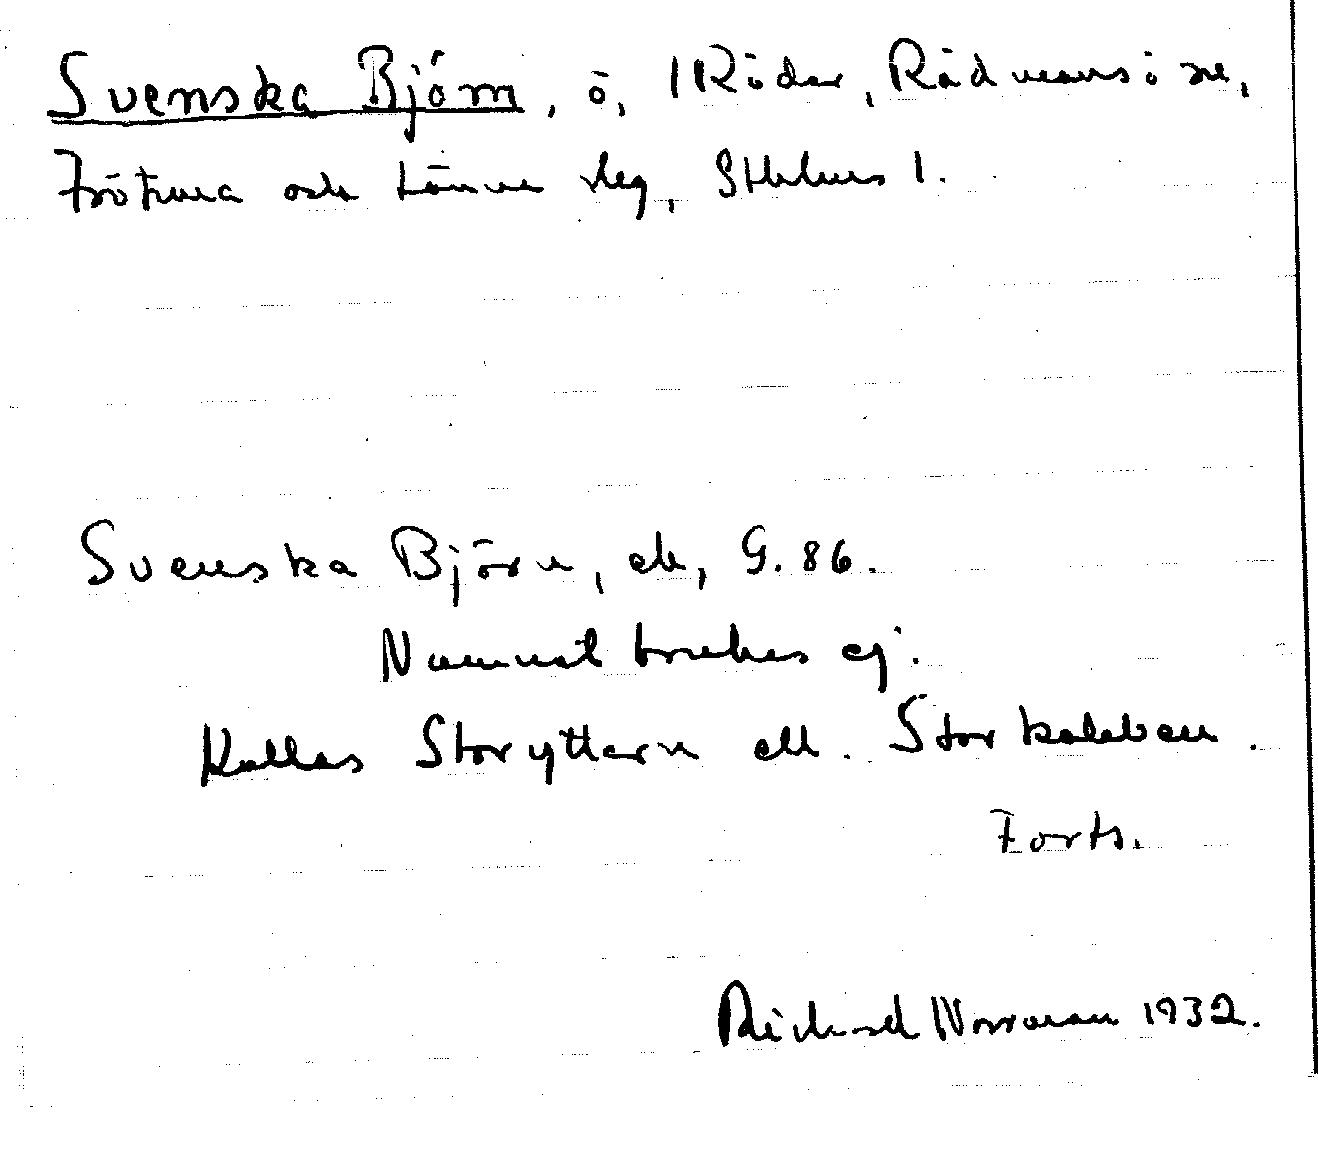 Svenska Björn, ö, 1 Rödar, Rådmansö sn,
Frötuna och Länna slg, Sthlms l.
Svenska Björn, ek, G. 86.
Namnet brukas ej.
Kallas Storyttern ell. Storkalaban.
Forts.
Rickard Norrman 1932.